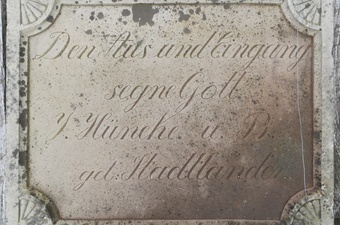 Den Aus und Eingang
segne Gott
J. Hünche u. B.
geb. Stadtlander